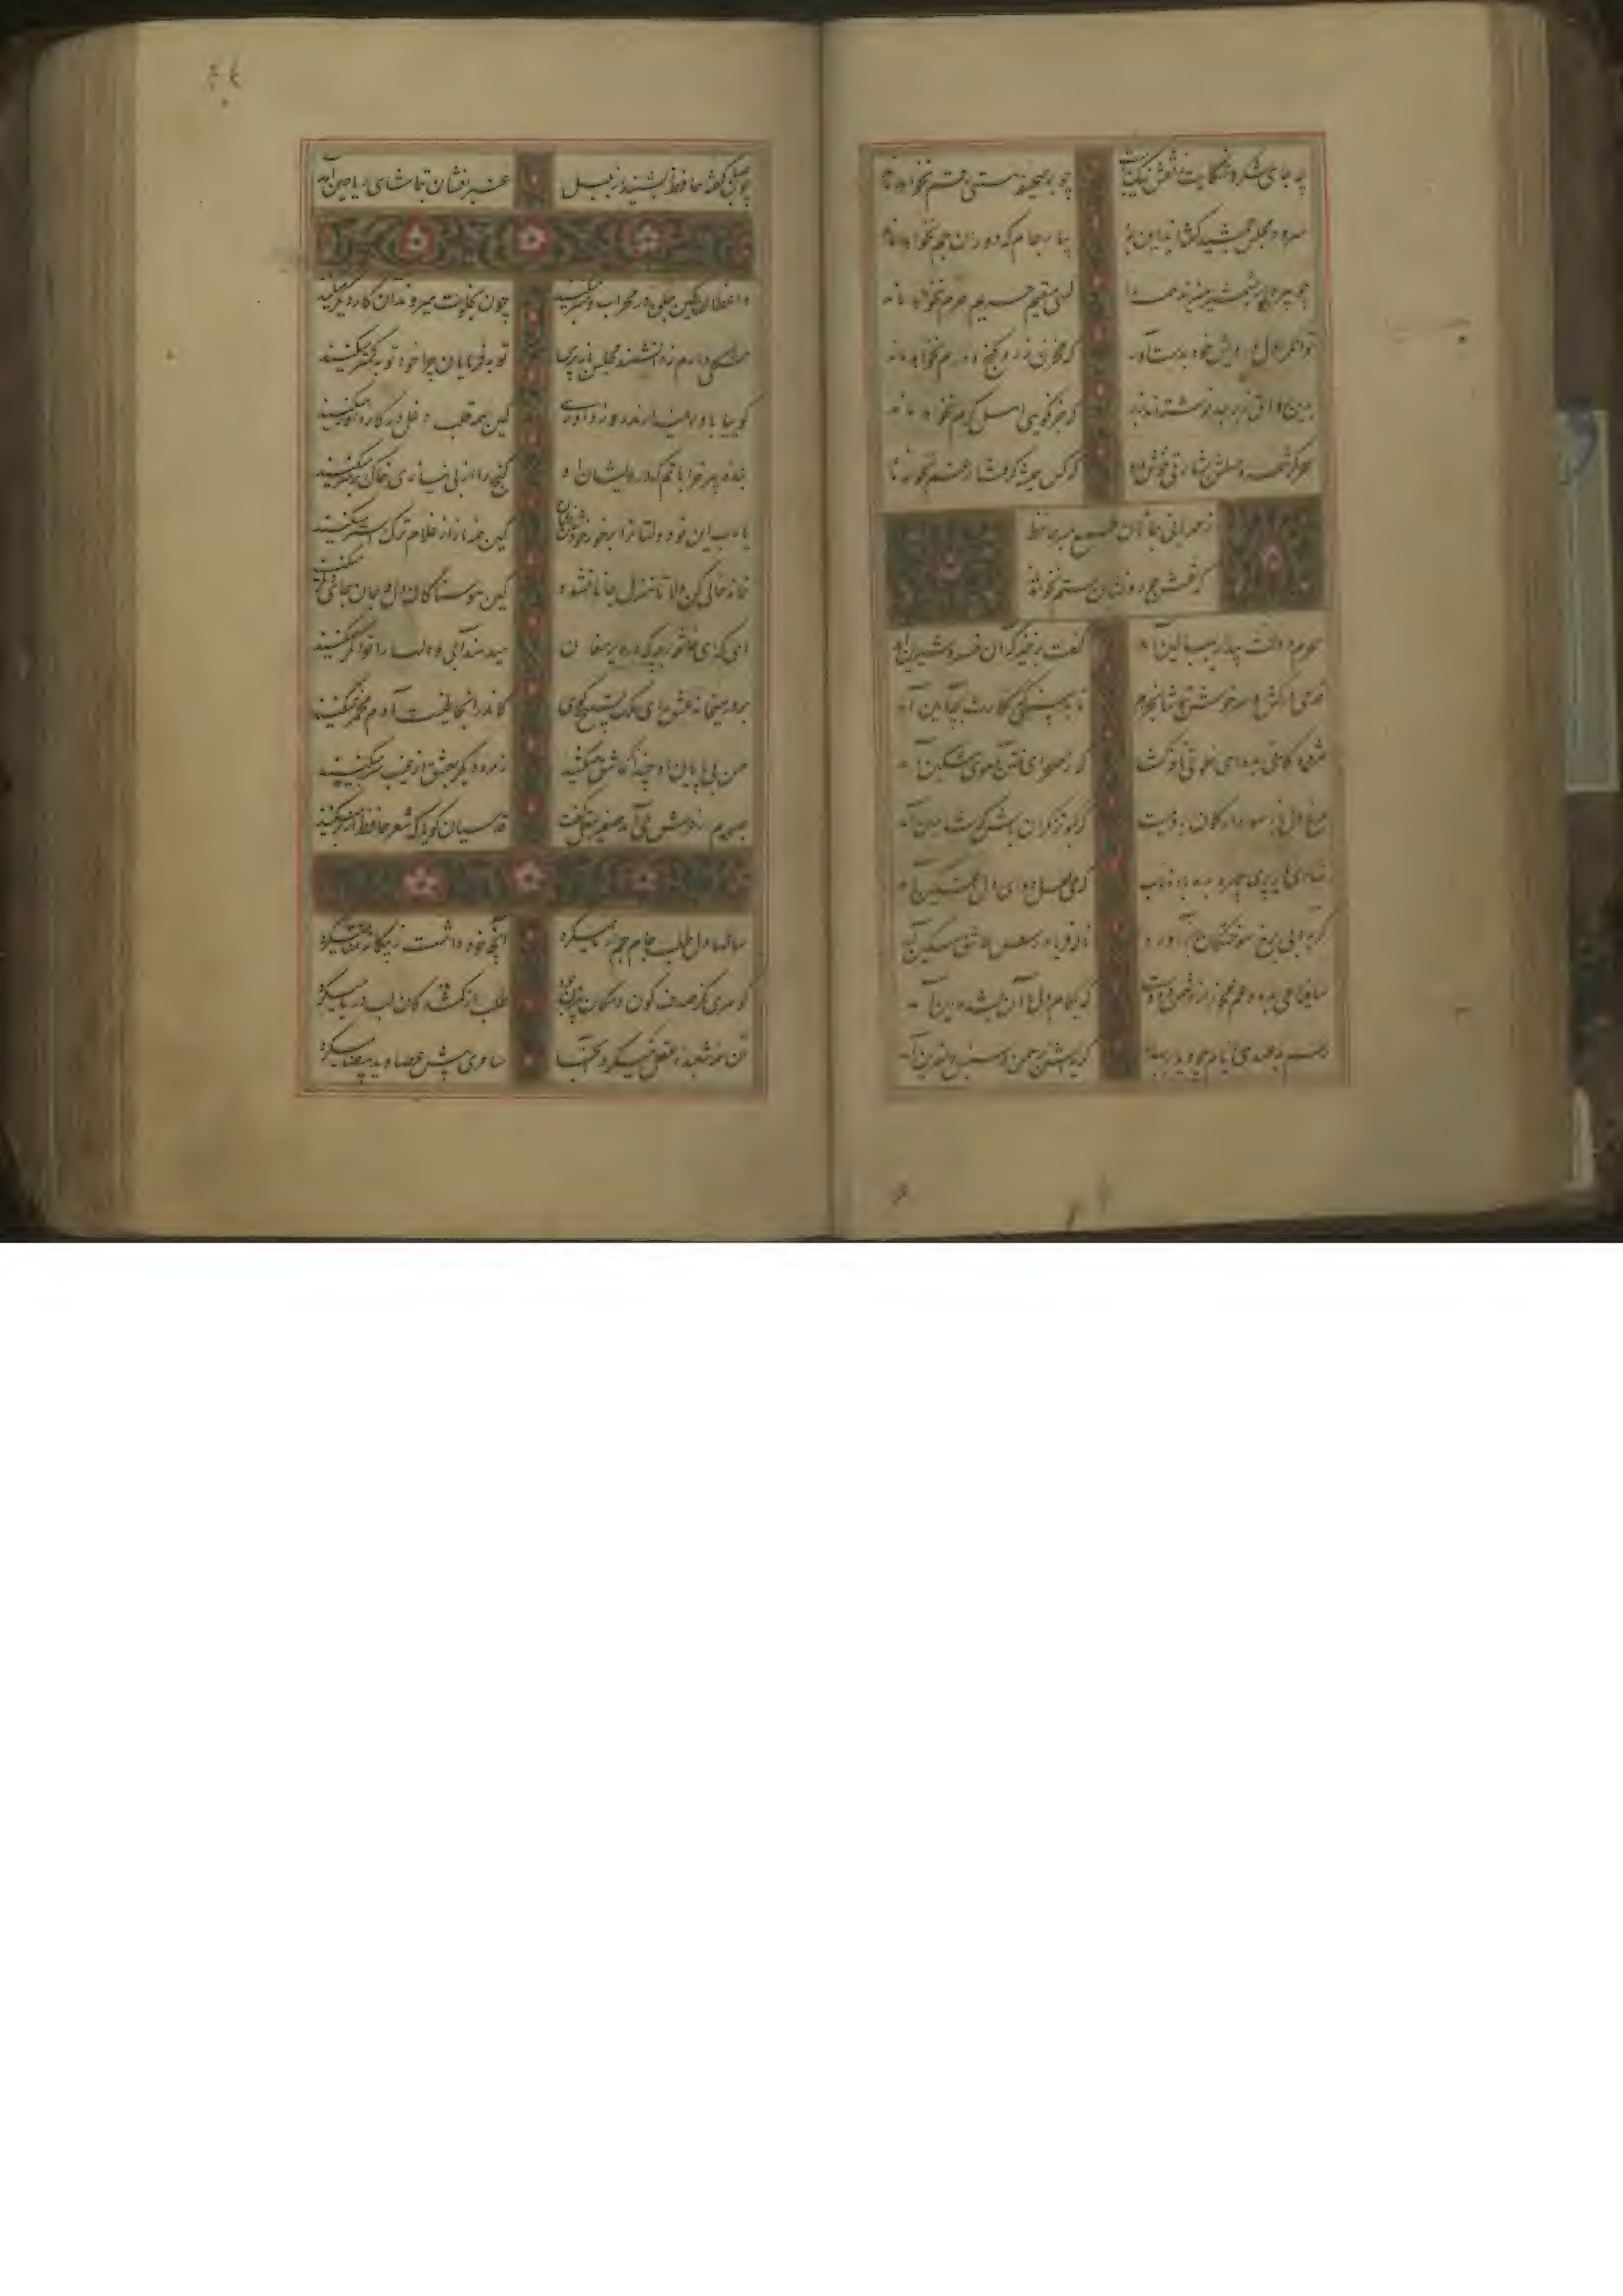 چه جای شکر و شکایت ز نقش نیک و بدست
چو بر صحیفه هستی رقم نخواهد ماند
سرود مجلس جمشید گفته‌اند این بود
بیار جام که دوران جم نخواهد ماند
چو پرده‌دار بشمشیر میزند همه را
کسی مقیم حریم حرم نخواهد ماند
توانگرا دل درویش خود بدست آور
که مخزن زر و گنج و درم نخواهد ماند
برین رواق زبرجد نوشته‌اند بزر
که جز نکویی اهل کرم نخواهد ماند
سحر کرشمه وصلش بشارتی خوش داد
که کس همیشه گرفتار غم نخواهد ماند
ز مهربانی جانان طمع مبر حافظ
که نقش جور و نشان ستم نخواهد ماند
سحرم دولت بیدار ببالین آمد
گفت برخیز که آن خسرو شیرین آمد
قدحی درکش و سرخوش بتماشا بخرام
تا ببینی که نگارت بچه آیین آمد
مژدگانی بده ای خلوتی نافه گشای
که ز صحرای ختن آهوی مشکین آمد
مرغ دل باز هوادار کمان ابروییست
که کبوتر نگران باش که شاهین آمد
شادی یار پری چهره بده باده ناب
که می لعل دوای دل غمگین آمد
گریه آبی برخ سوختگان باز آورد
ناله فریادرس عاشق مسکین آمد
ساقیا می بده و غم مخور از دشمن و دوست
که بکام دل ما آن بشد و این آمد
رسم بدعهدی ایام چو دید ابر بهار
گریه‌اش بر سمن و سنبل و نسرین آمد
چون صبا گفته حافظ بشنید از بلبل
عنبرافشان بتماشای ریاحین آمد
واعظان کین جلوه در محراب و منبر میکنند
چون بخلوت میروند آن کار دیگر میکنند
مشکلی دارم ز دانشمند مجلس باز پرس
توبه فرمایان چرا خود توبه کمتر میکنند
گوییا باور نمیدارند روز داوری
کین همه قلب و دغل در کار داور میکنند
بنده پیر خراباتم که درویشان او
گنج را از بی نیازی خاک بر سر میکنند
یارب این نو دولتان را بر خر خودشان نشان
کین همه ناز از غلام ترک و استر میکنند
خانه خالی کن دلا تا منزل جانان شود
کین هوسناکان دل و جان جای لشکر میکنند
ای گدای خانقه برجه که در دیر مغان
میدهند آبی و دلها را توانگر میکنند
بر در میخانه عشق ای ملک تسبیح گوی
کاندر آنجا طینت آدم مخمر میکنند
حسن بی پایان او چندانکه عاشق میکشد
زمره دیگر بعشق از غیب سر بر میکنند
صبحدم از عرش می آمد صفیری عقل گفت
قدسیان گویی که شعر حافظ از بر میکنند
سالها دل طلب جام جم از ما میکرد
آنچه خود داشت ز بیگانه تمنا میکرد
گوهری کز صدف کون و مکان بیرون بود
طلب از گمشدگان لب دریا میکرد
آن همه شعبده عقل که میکرد آنجا
سامری پیش عصا و ید بیضا میکرد